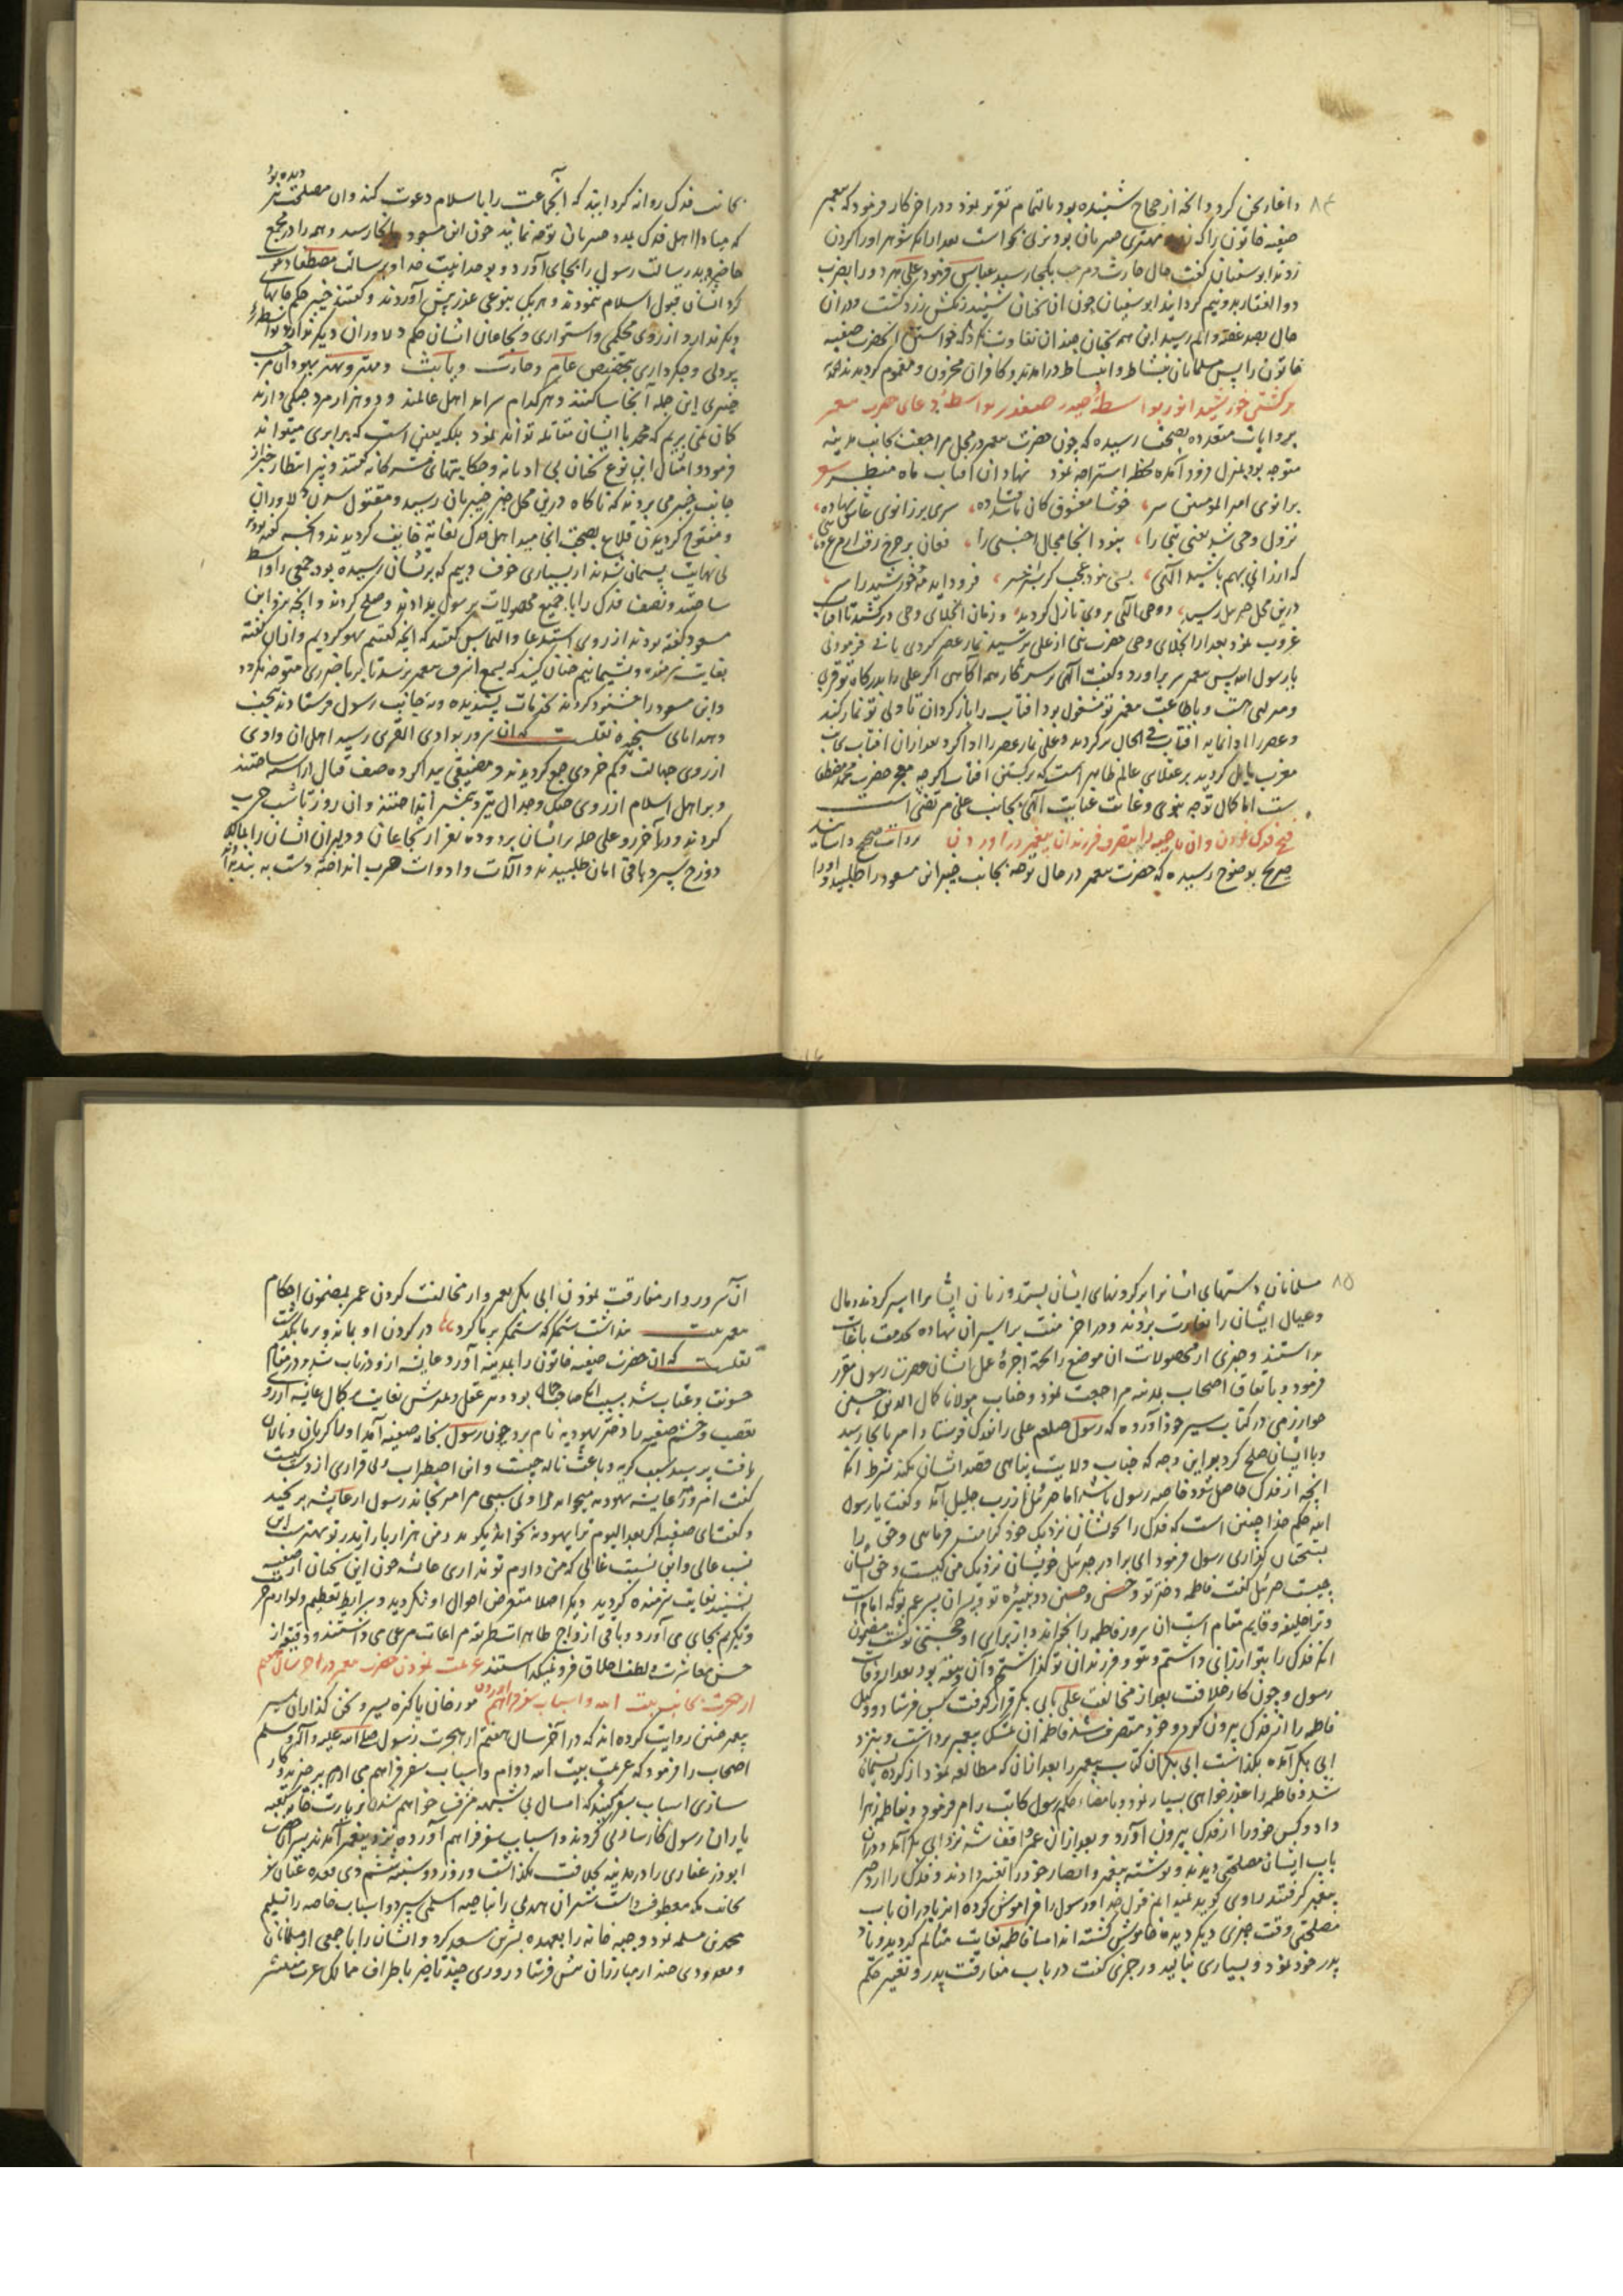 ۸۴
و اغاز سخن کرد و انچه از حجاج شنیده بود بالتمام تقریر نمود و در اخر کار فرمود که پیغمبر
صفیه خاتون را که مهتری خیبریان بود بزنی بخواست بعد از آنکه شوهر او را کردن
زدند ابوسفیان گفت حال حارث و مرحب بکجا رسید عباس فرمود علی هر دو را بضرب
ذوالفقار بدو نیم گردانید ابوسفیان چون ان سخنان شنید رنگش زرد گشت و در ان
حال بصد غصه و الم رسید این همه سخنان چندان تفاوت نکرد که خواستن آنحضرت صفیه
خاتون را پس مسلمانان بنشاط و انبساط درامدند و کافران محزون و مغموم گردیدند
برگشتن خورشید انور بواسطه حیدر صفدر بواسطه دعای حضرت پیغمبر
بروایات متعدده بصحت رسیده که چون حضرت پیغمبر در محل مراجعت بجانب مدینه
متوجه بود بمنزل فرود آمده لحظه استراحه نمود نهاد ان افتاب ماه منظر
بر زانوی امیر المومنین سر خوشا معشوق کان باشد فتاده سری بر زانوی عاشق نهاده
نزول وحی شد یعنی نبی را نبود انجا مجال اجنبی را
درین محل جبرئیل رسید و وحی الهی بر وی نازل گردید و زمان انجلای وحی در کشید تا افتاب
غروب نمود بعد از انجلای وحی حضرت نبی از علی پرسید نماز عصر کردی یا نی فرمود نی
یا رسول الله پس پیغمبر سر براورد و گفت الهی بر سر کار همه آگاهی اگر علی را بدرگاه تو قربی
و منزلتی هست و بطاعت پیغمبر تو مشغول بود افتاب را باز گردان تا ولی تو نماز کند
و عصر را ادا نماید افتاب فی الحال برگردید و علی نماز عصر را ادا کرد بعد از ان افتاب بجانب
مغرب مایل گردید بر عقلای عالم ظاهر است که برگشتن افتاب اگر چه معجزه حضرت محمد مصطفی
است اما کمال توجه نبوی و غایت عنایت الهی بجانب علی مرتضی است
فتح فدک نمودن و ان ناحیه را بتصرف فرزندان پیغمبر در اوردن روایات صحیح و اسانید
صریح بوضوح رسیده که حضرت پیغمبر در حال توجه بجانب خیبر ابن مسعود را طلبید و او را
بجانب فدک روانه گردانید که انجماعت را باسلام دعوت کند و ان مصلحت نیز دیده بود
که مبادا اهل فدک بمدد خیبریان توجه نمایند چون ابن مسعود بانجا رسید و همه را در مجمع
حاضر دید رسالت رسول را بجای آورد و بوحدانیت خدا و برسالت مصطفا دعوت
کرد ایشان قبول اسلام ننمودند و هر یک بنوعی عذر پیش آوردند و گفتند خیبر حکم جایهای
دیگر ندارد از روی محکمی و استواری و شجاعان ایشان حکم دلاوران دیگر ندارند بواسطه
پردلی و جگرداری بتخصیص عامر و حارث و یاسر و مهتر و بهتر یهودان مرحب
خیبری این جمله آنجا ساکنند و هر کدام سرامد اهل عالمند و ده هزار مرد جنگی دارند
گمان نمی بریم که محمد با ایشان مقاتله تواند نمود بلکه یعنی است که برابری میتواند
فرمود و امثال این نوع سخنان بی ادبانه و حکایتهای مشرکانه گفتند و نیز انتظار خبر از
جانب خیبر می بردند که ناگاه درین محل خبر خیبریان رسید و مقتول شدن دلاوران
و مفتوح گردیدن قلاع بصحت انجامید اهل فدک بغایة خایف گردیدند و انچه گفته بودند
بی نهایت پشیمان شدند از بسیاری خوف و بیم که بر ایشان رسیده بود جمعی را واسطه
ساختند و نصف فدک را با جمیع محصولات برسول بدادند و صلح کردند و انچه نزد ابن
مسعود گفته بودند از روی استدعا و التماس گفتند که انچه گفتیم سهو کردیم و از ان گفته
بغایت شرمنده و پشیمانیم چنان کنید که بسمع اشرف پیغمبر نرسد تا بر ما ضرری متوجه نگردد
و ابن مسعود را خشنود کردند بخدمات پسندیده و بجانب رسول فرستادند تحف
و هدایای سنجیده نقلست که ان سرور بوادی القری رسید اهل ان وادی
از روی جهالت و کم خردی جمع گردیدند و مضیقی پیدا کرده صف قتال آراسته ساختند
و بر اهل اسلام از روی جنگ و جدال تیر و شمشیر انداختند و ان روز تا شب حرب
کردند و در آخر رو علی حمله بر ایشان برد و ده نفر از شجاعان و دلیران ایشان را بمالک
دوزخ سپرد باقی امان طلبیدند و آلات و ادوات حرب انداخته دست به بند دادند
۸۵
مسلمانان دستهای ایشان را بر گردنهای ایشان بستند و زنان ایشانرا اسیر کردند و مال
و عیال ایشان را بغارت بردند و در اخر منت بر اسیران نهاده
داشتند و چیزی از محصولات ان موضع را بجهة اجرة عمل ایشان حضرت رسول مقرر
فرمود و باتفاق اصحاب بمدینه مراجعت نمود و جناب مولانا کمال الدین حسین
خوارزمی در کتاب سیر خود آورده که رسول صلعم علی را بفدک فرستاد امیر بانجا رسید
و با ایشان صلح کرد بر این وجه که جناب ولایت پناهی قصد ایشان نکند بشرط انکه
انچه از فدک حاصل شود خاصه رسول باشد اما جبرئیل از رب جلیل آمد و گفت یا رسول
الله حکم خدا چنین است که فدک را بخویشان نزدیک خود کرامت فرمائی و حق را
بمستحقان گذاری رسول فرمود ای برادر جبرئیل خویشان نزدیک من کیست و حق ایشان
چیست جبرئیل گفت فاطمه دختر تو و حسن و حسین دو نبیره تو و پسران پسر عم تو که امام است
و ترا خلیفه و قایم مقام است ان سرور فاطمه را بخواند و از برای او حجتی نوشت مضمون
انکه فدک را بتو ارزانی داشتم و بتو و فرزندان تو گذاشتم و آن وثیقه بود بعد از وفات
رسول و چون کار خلافت بعد از مخالفت علی بابی بکر قرار گرفت کس فرستاد و وکیل
فاطمه را از فدک بیرون کرد و خود متصرف شد فاطمه ان تمسک پیغمبر برداشت و بنزد
ابی بکر آمده بگذاشت ابی بکر ان کتاب پیغمبر را بعد از ان که مطالعه نمود از کرده پشیمان
شد و فاطمه را عذر خواهی بسیار نمود و بامضاء حکم رسول کاتب را امر فرمود و بفاطمه زهرا
داد و کس خود را از فدک بیرون آورد و بعد از ان عمر واقف شد نزد ابی بکر آمد و در ان
باب ایشان مصلحتی دیدند و نوشته پیغمبر و امضاء خود را تغییر دادند و فدک را از دختر
پیغمبر گرفتند راوی گوید نمیدانم قول خدا و رسول را فراموش کرده اند یا در ان باب
مصلحتی وقت چیزی دیگر دیده خاموش گشته اند اما فاطمه بغایت متألم گردید و یاد
پدر خود نمود و بسیاری نالید و چیزی گفت در باب مفارقت پدر و تغییر حکم
ان سرور و از مفارقت نمودن ابی بکر پیغمبر و از مخالفت کردن عمر بمضمون احکام
پیغمبر بیت پنداشت ستمگر که ستم بر ما کرد در گردن او بماند و بر ما بگذشت
نقلست که ان حضرت صفیه خاتون را بمدینه آورد و عایشه ازو در تاب شد و در مقام
خشونت و عتاب شد بسبب انکه صاحب جمال بود و در عقل و علمش بغایت بکمال عایشه از روی
تعصب و خشم صفیه را دختر یهودیه نام برد چون رسول بخانه صفیه آمد او را گریان و نالان
یافت پرسید سبب گریه و باعث ناله چیست و این اضطراب و بی قراری از دست کیست
گفت امروز عایشه یهودیه میخواند مرا و بی سببی مرا میرنجاند رسول از عایشه برنجید
و گفت ای صفیه اگر بعد الیوم ترا یهودیه بخواند بگو پدر من هزار بار از پدر تو بهتر است این
نسب عالی و این نسبت غالی که من دارم تو نداری عایشه چون این سخنان از صفیه
بشنید بغایت شرمنده گردید دیگر اصلا متعرض احوال او نگردید و شرایط تعظیم و لوازم حرمت
و تکریم بجای می آورد و باقی ازواج طاهرات طریقه مراعات مرعی می داشتند و دقیقه از
حسن معاشرت و لطف اخلاق فرو نمیگذاشتند عزیمت نمودن حضرت پیغمبر در اخر سال هفتم
از هجرت بجانب بیت الله و اسباب سفر فراهم اوردن مورخان پاکیزه سیر و سخن گذاران سیر
پیغمبر چنین روایت کرده اند که در آخر سال هفتم از هجرت رسول صلی الله علیه و آله و سلم
اصحاب را فرمود که عزیمت بیت الله دارم و اسباب سفر فراهم می ارم برخیزند و کار
سازی اسباب سفر کنید که امسال بی شبهه مشرف خواهم شدن بزیارت خانه کعبه
یاران رسول کارسازی کردند و اسباب سفر فراهم آورده نزد پیغمبر آمدند پس آنحضرت
ابوذر غفاری را در مدینه بخلافت بگذاشت و روز دوشنبه ششم ذی قعده عنان سفر
بجانب مکه معطوف داشت شتران هدی را بناجیه اسلمی سپرد و اسباب خاصه را تسلیم
محمد بن مسلمه نمود و جبه خانه را بعهده بشر بن سعد کرد و ایشان را با جمعی از مسلمانان
و معدودی چند از مبارزان پیش فرستاد و روزی چند تاخیر باطراف ممالک عرب منتشر